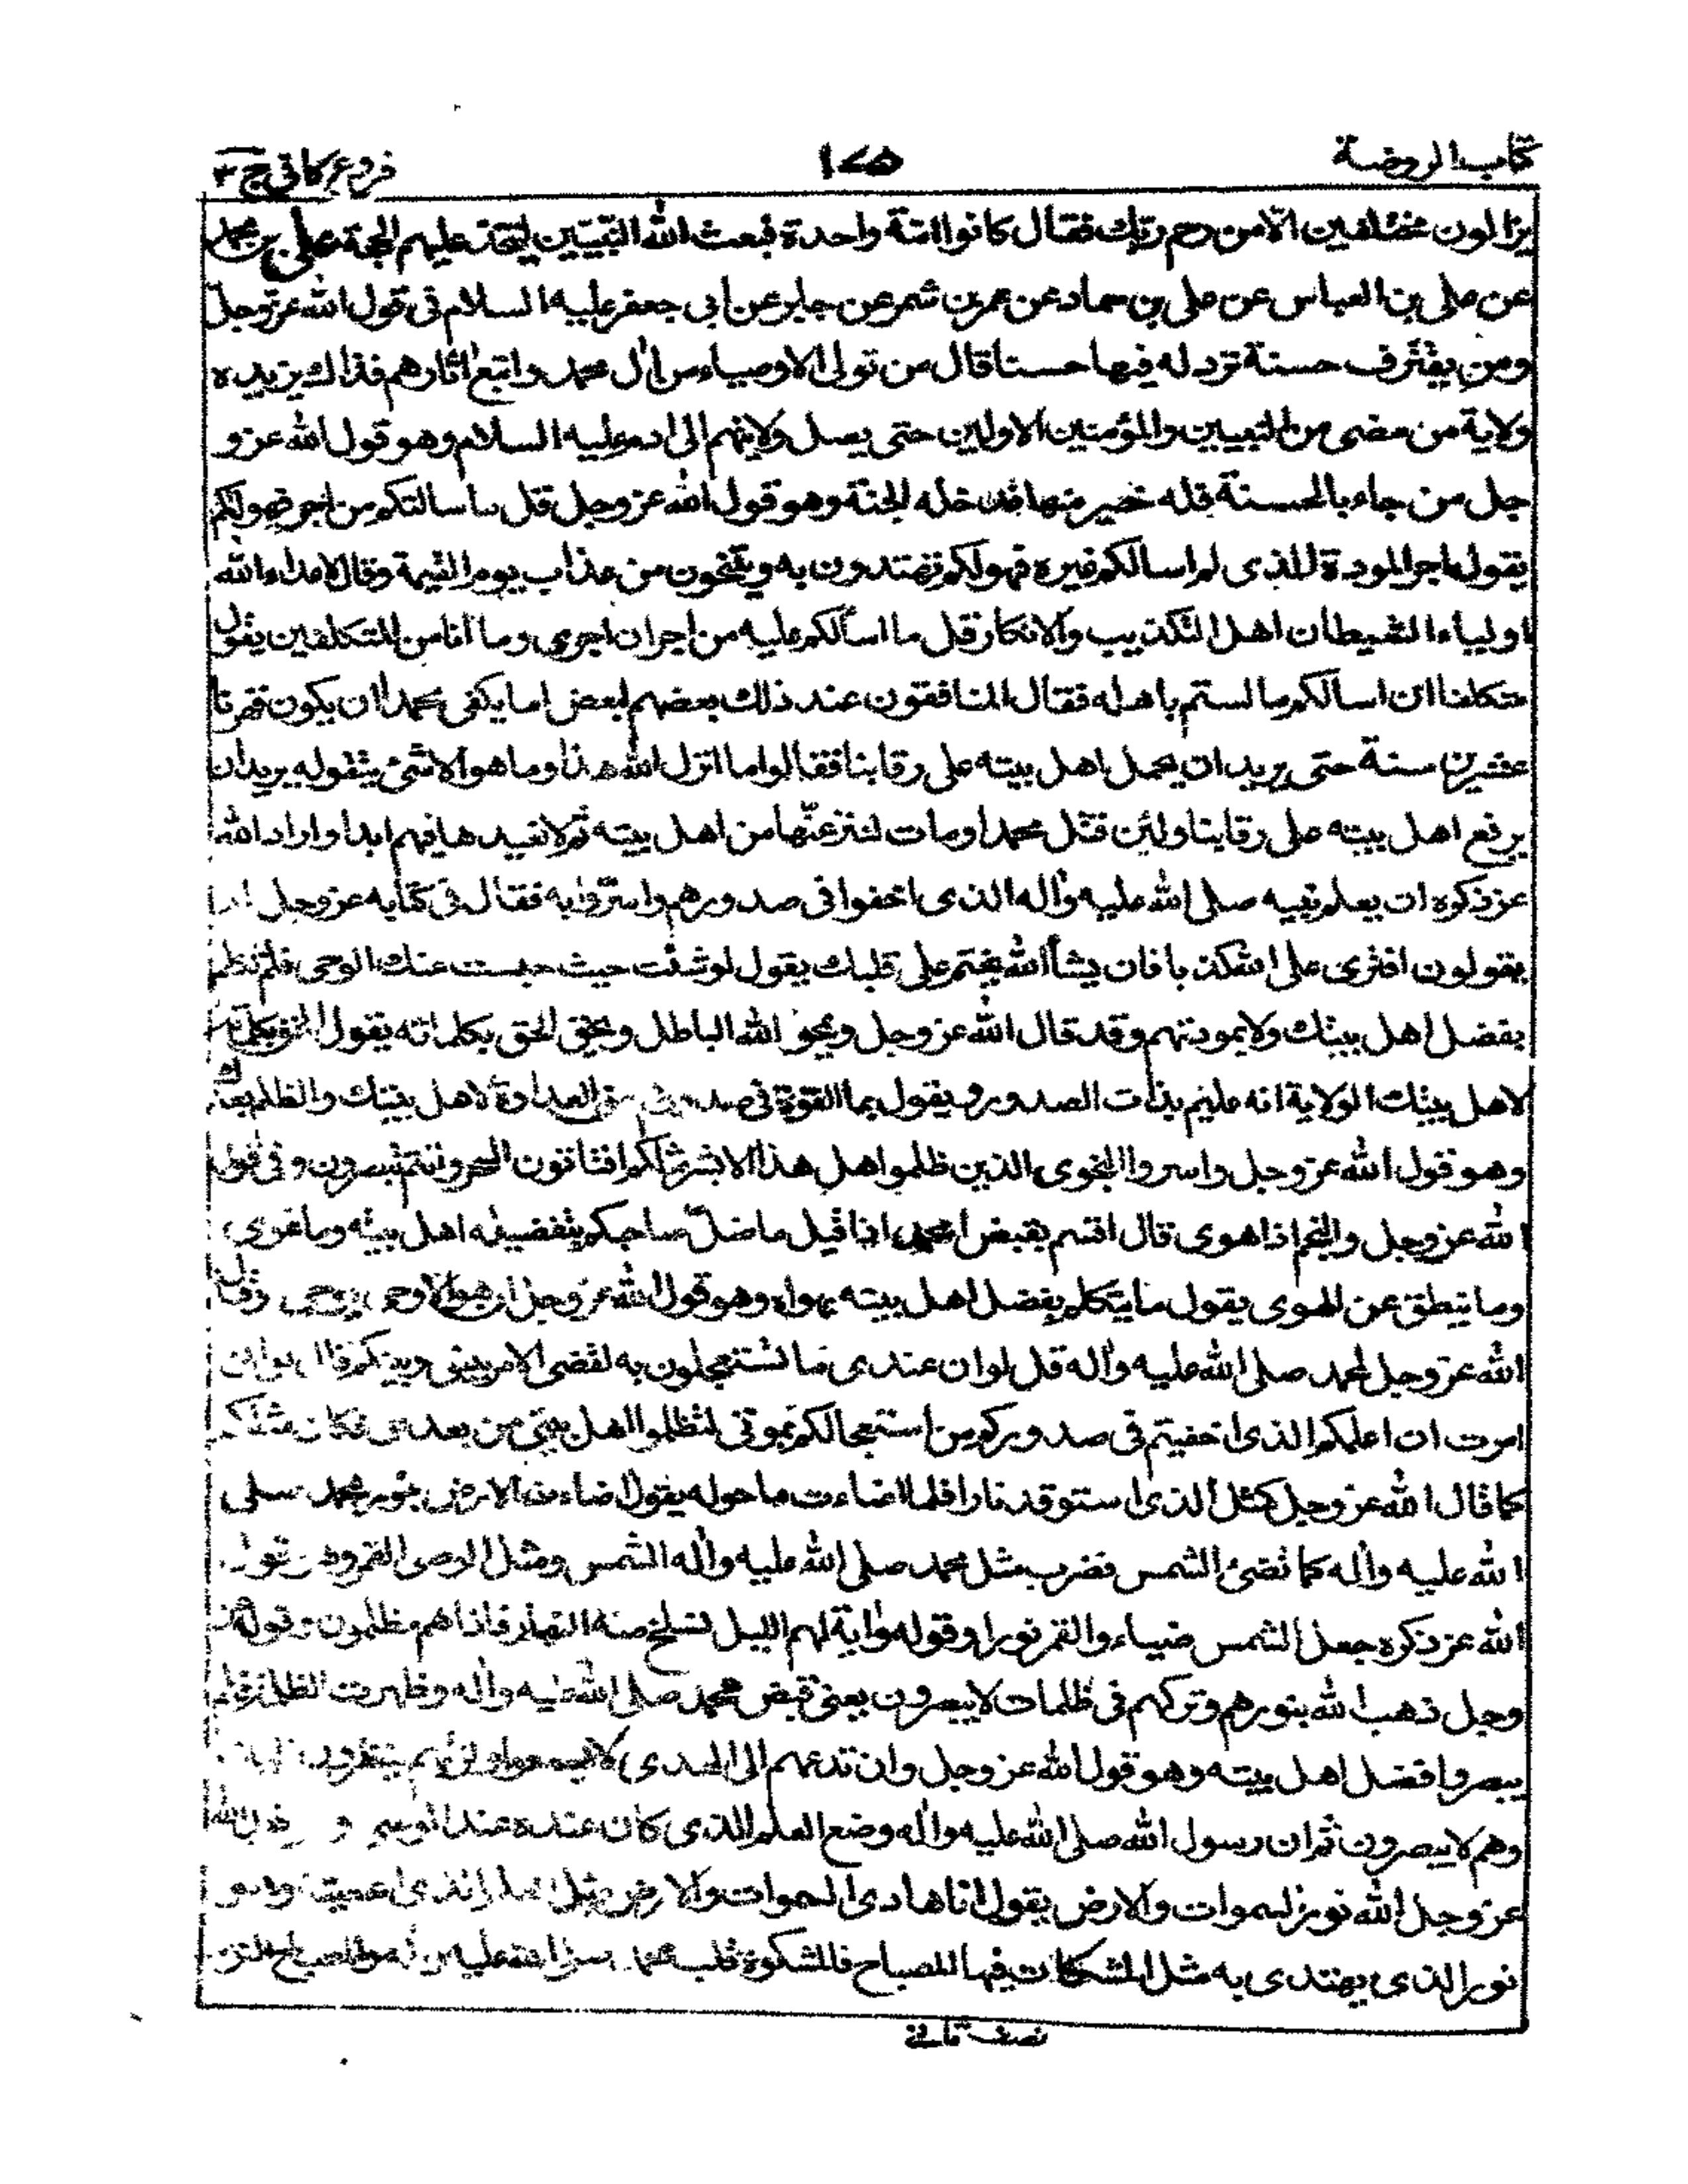 كتاب الروضة ١٧٥ فروع كافى ج ٣
يزالون مختلفين الّا من رحم ربّك فقال كانوا امّة واحدة فبعث اللّٰه النّبيّين ليتخذ عليهم الحجة على بن محمد
عن على بن العباس عن على بن حماد عن عمر بن شمر عن جابر عن ابى جعفر عليه السلام فى قول اللّٰه عزّوجلّ
ومن يقترف حسنة نزد له فيها حسنا قال من تولى الاوصياء من اٰل محمد واتبع اٰثارهم فذاك يزيده
ولاية من مضى من النبيين والمؤمنين الاولين حتى يصل ولايتهم الى ادم عليه السلام وهو قول اللّٰه عزو
جل من جاء بالحسنة فله خير منها يدخله الجنة وهو قول اللّٰه عزوجل قل ما سالتكم من اجر فهو لكم
يقول اجر المودة الذى لم اسالكم غيره فهو لكم تهتدون به وتنجون من عذاب يوم القيمة وقال لاعداء اللّٰه
اولياء الشيطان اهل التكذيب والانكار قل ما اسألكم عليه من اجر ان اجرى وما انا من المتكلفين يقول
متكلفا ان اسالكم ما لستم باهله فقال المنافقون عند ذلك بعضهم لبعض اما يكفى محمدا ان يكون قهرنا
عشرين سنة حتى يريد ان يحمل اهل بيته على رقابنا فقالوا ما انزل اللّٰه هذا وما هو الا شئ يتقوله يريد ان
يرفع اهل بيته على رقابنا ولئن قتل محمد او مات لننزعنّها من اهل بيته ثم لا نعيدها فيهم ابدا واراد اللّٰه
عز ذكره ان يعلم نبيه صلى اللّٰه عليه واٰله الذى اخفوا فى صدورهم واسرّوا به فقال فى كتابه عزوجل ام
يقولون افترى على اللّه كذبا فان يشأ اللّٰه يختم على قلبك يقول لو شئت حبست عنك الوحى فلم تكلم
بفضل اهل بيتك ولا بمودتهم وقد قال اللّٰه عزوجل ويمحو اللّٰه الباطل ويحق الحق بكلماته يقول الحق
لاهل بيتك الولاية انه عليم بذات الصدور ويقول بما القوه فى صدورهم من العداوة لاهل بيتك والظلم بعدك
وهو قول اللّٰه عزوجل واسروا النجوى الذين ظلموا هل هذا الا بشر مثلكم افتاتون السحر وانتم تبصرون وفى قول
اللّٰه عزوجل والنجم اذا هوى قال اقسم بقبض محمد اذا قبض ما ضلّ صاحبكم بتفضيله اهل بيته وما غوى
وما ينطق عن الهوى يقول ما يتكلم بفضل اهل بيته بهواه وهو قول اللّٰه عزوجل ان هو الا وحى يوحى وقال
اللّٰه عزوجل لمحمد صلى اللّٰه عليه واٰله قل لو ان عندى ما تستعجلون به لقضى الامر بينى وبينكم قال لو انى
امرت ان اعلمكم الذى اخفيتم فى صدوركم من استعجالكم بموتى لتظلموا اهل بيتى من بعدى فكان مثلكم
كما قال اللّٰه عزوجل كمثل الذى استوقد نارا فلما اضاءت ما حوله يقول اضاءت الارض بنور محمد صلى
اللّٰه عليه واٰله كما تضئ الشمس فضرب مثل محمد صلى اللّٰه عليه واٰله الشمس ومثل الوصى القمر وهو قول
اللّٰه عز ذكره جعل الشمس ضياء والقمر نورا وقوله واٰية لهم الليل نسلخ منه النهار فاذا هم مظلمون وقوله عز
وجل ذهب اللّٰه بنورهم وتركهم فى ظلمات لا يبصرون يعنى قبض محمد صلى اللّٰه عليه واٰله وظهرت الظلمة فلم
يبصروا فضل اهل بيته وهو قول اللّٰه عزوجل وان تدعهم الى الهدى لا يسمعوا وتراهم ينظرون اليك
وهم لا يبصرون ثم ان رسول اللّٰه صلى اللّٰه عليه واٰله وضع العلم الذى كان عنده عند الوصى و قول اللّٰه
عزوجل اللّٰه نور السموات والارض يقول انا هادى السموات والارض مثل العلم الذى اعطيته وهو
نور الذى يهتدى به مثل المشكات فيها المصباح فالمشكوة قلب محمد صلى اللّٰه عليه واٰله والمصباح النور
نصف ثانى